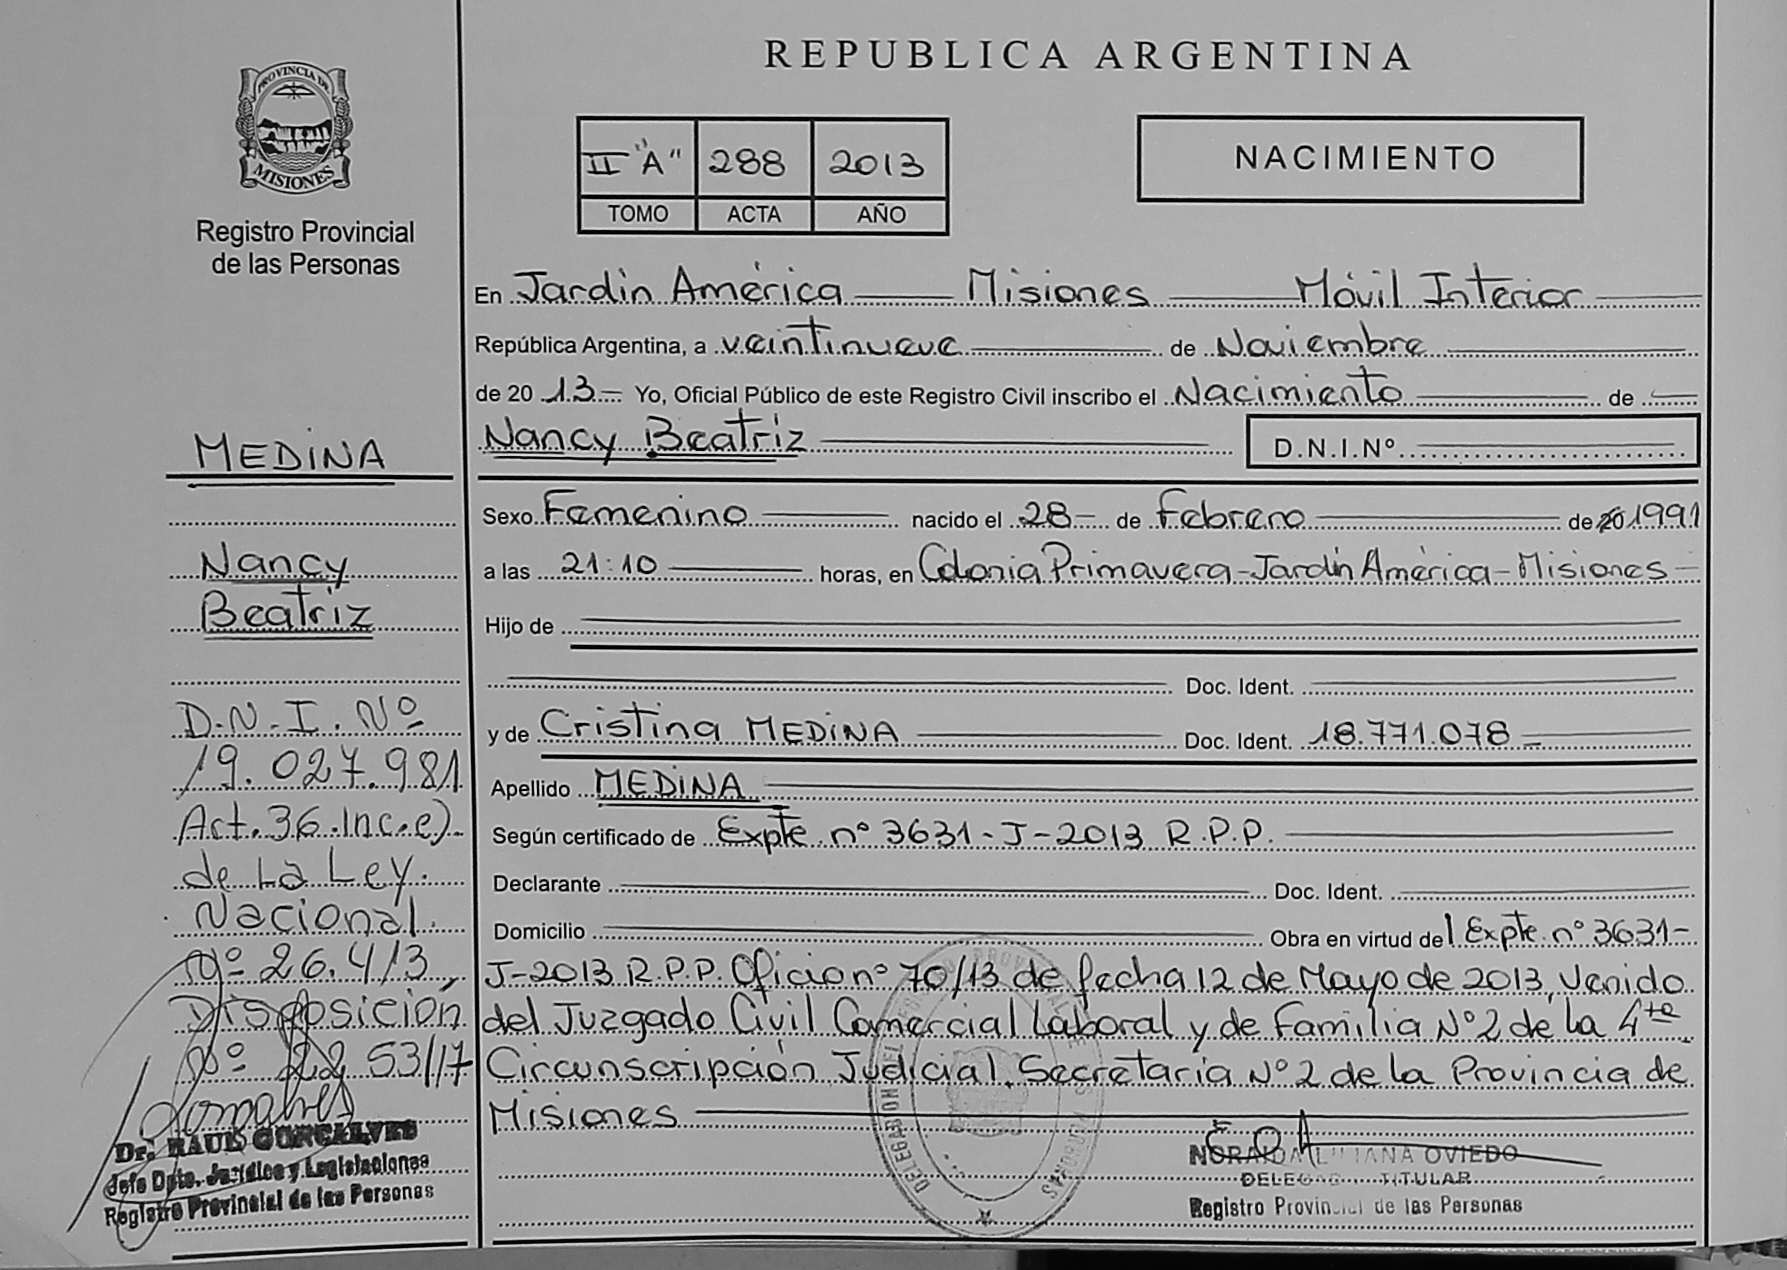 REPUBLICA ARGENTINA
PROVINCIA DE
MISIONES
Registro Provincial
de las Personas
II "A" 288 2013
TOMO ACTA AÑO
NACIMIENTO
En Jardín América Misiones Móvil Interior
República Argentina, a veintinueve de Noviembre
de 20 13 Yo, Oficial Público de este Registro Civil inscribo el Nacimiento de
Nancy Beatriz D.N.I.Nº
Sexo Femenino nacido el 28 de Febrero de 20 1991
a las 21:10 horas, en Colonia Primavera - Jardín América - Misiones
Hijo de
Doc. Ident.
y de Cristina MEDINA Doc. Ident. 18.771.078
Apellido MEDINA
Según certificado de Expte. nº 3631 - J - 2013 R.P.P.
Declarante Doc. Ident.
Domicilio Obra en virtud del Expte. nº 3631-
J-2013 R.P.P. Oficio nº 70/13 de fecha 12 de Mayo de 2013, venido
del Juzgado Civil Comercial Laboral y de Familia Nº 2 de la 4ta
Circunscripción Judicial. Secretaría Nº 2 de la Provincia de
Misiones
MEDINA
Nancy
Beatriz
D.N.I. Nº
19.027.981
Art. 36 Inc. e)
de La Ley
Nacional
Nº 26.413,
Disposición
Nº 2253/17
Dr. RAUL GONCALVES
Jefe Dpto. Jurídico y Legislaciones
Registro Provincial de las Personas
OVIEDO
TITULAR
Registro Provincial de las Personas